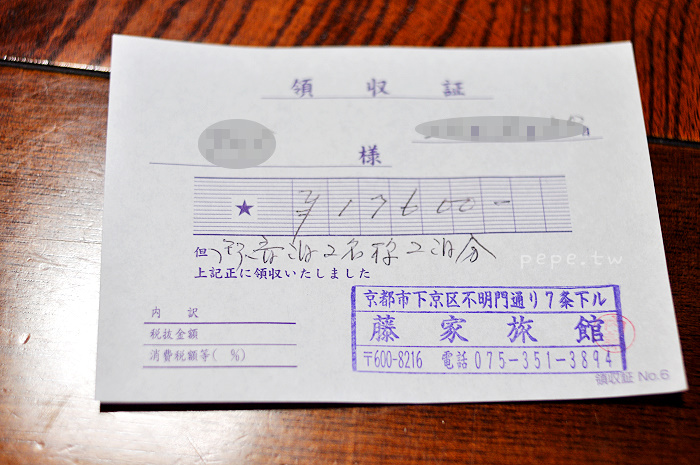 領収証
様
★ ¥17600-
但 御宿泊2名様2泊分
上記正に領収いたしました
pepe.tw
内訳
税抜金額
消費税額等( %)
京都市下京区不明門通り7条下ル
藤家旅館
〒600-8216 電話 075-351-3894
領収証 No.6